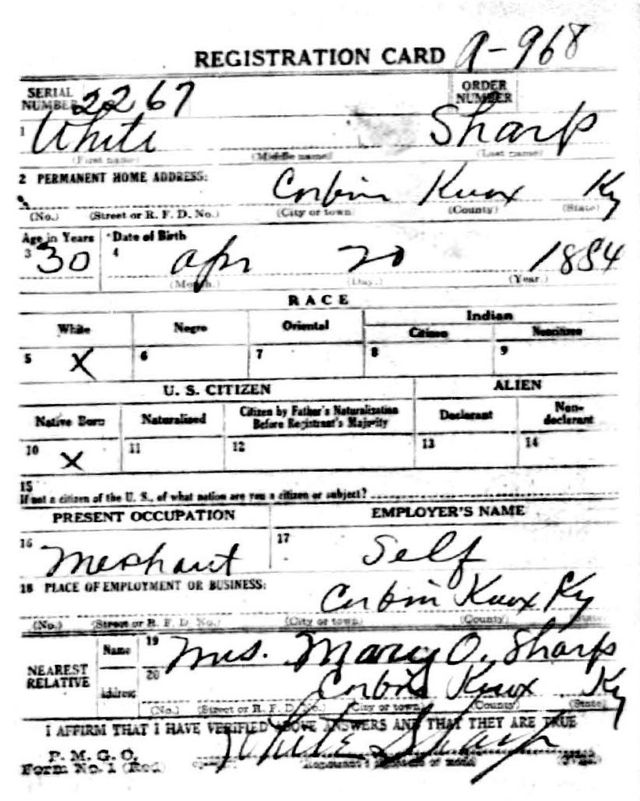 REGISTRATION CARD A-968
SERIAL NUMBER 2267 ORDER NUMBER
1 White Sharp
(First name) (Middle name) (Last name)
2 PERMANENT HOME ADDRESS: Corbin Knox Ky
(No.) (Street or R. F. D. No.) (City or town) (County) (State)
Age in Years Date of Birth
3 30 4 Apr 20 1884
(Month.) (Day.) (Year.)
RACE
White Negro Oriental Indian
Citizen Noncitizen
5 X 6 7 8 9
U. S. CITIZEN ALIEN
Native Born Naturalized Citizen by Father's Naturalization Before Registrant's Majority Declarant Non-declarant
10 X 11 12 13 14
15
If not a citizen of the U. S., of what nation are you a citizen or subject?
PRESENT OCCUPATION EMPLOYER'S NAME
16 Merchant 17 Self
18 PLACE OF EMPLOYMENT OR BUSINESS: Corbin Knox Ky
(No.) (Street or R. F. D. No.) (City or town) (County) State)
NEAREST RELATIVE Name 19 Mrs. Mary O. Sharp
Address 20 Corbin Knox Ky
(No.) (Street or R. F. D. No.) (City or town) (County) (State)
I AFFIRM THAT I HAVE VERIFIED ABOVE ANSWERS AND THAT THEY ARE TRUE
P. M. G. O.
Form No. 1 (Red) White Sharp